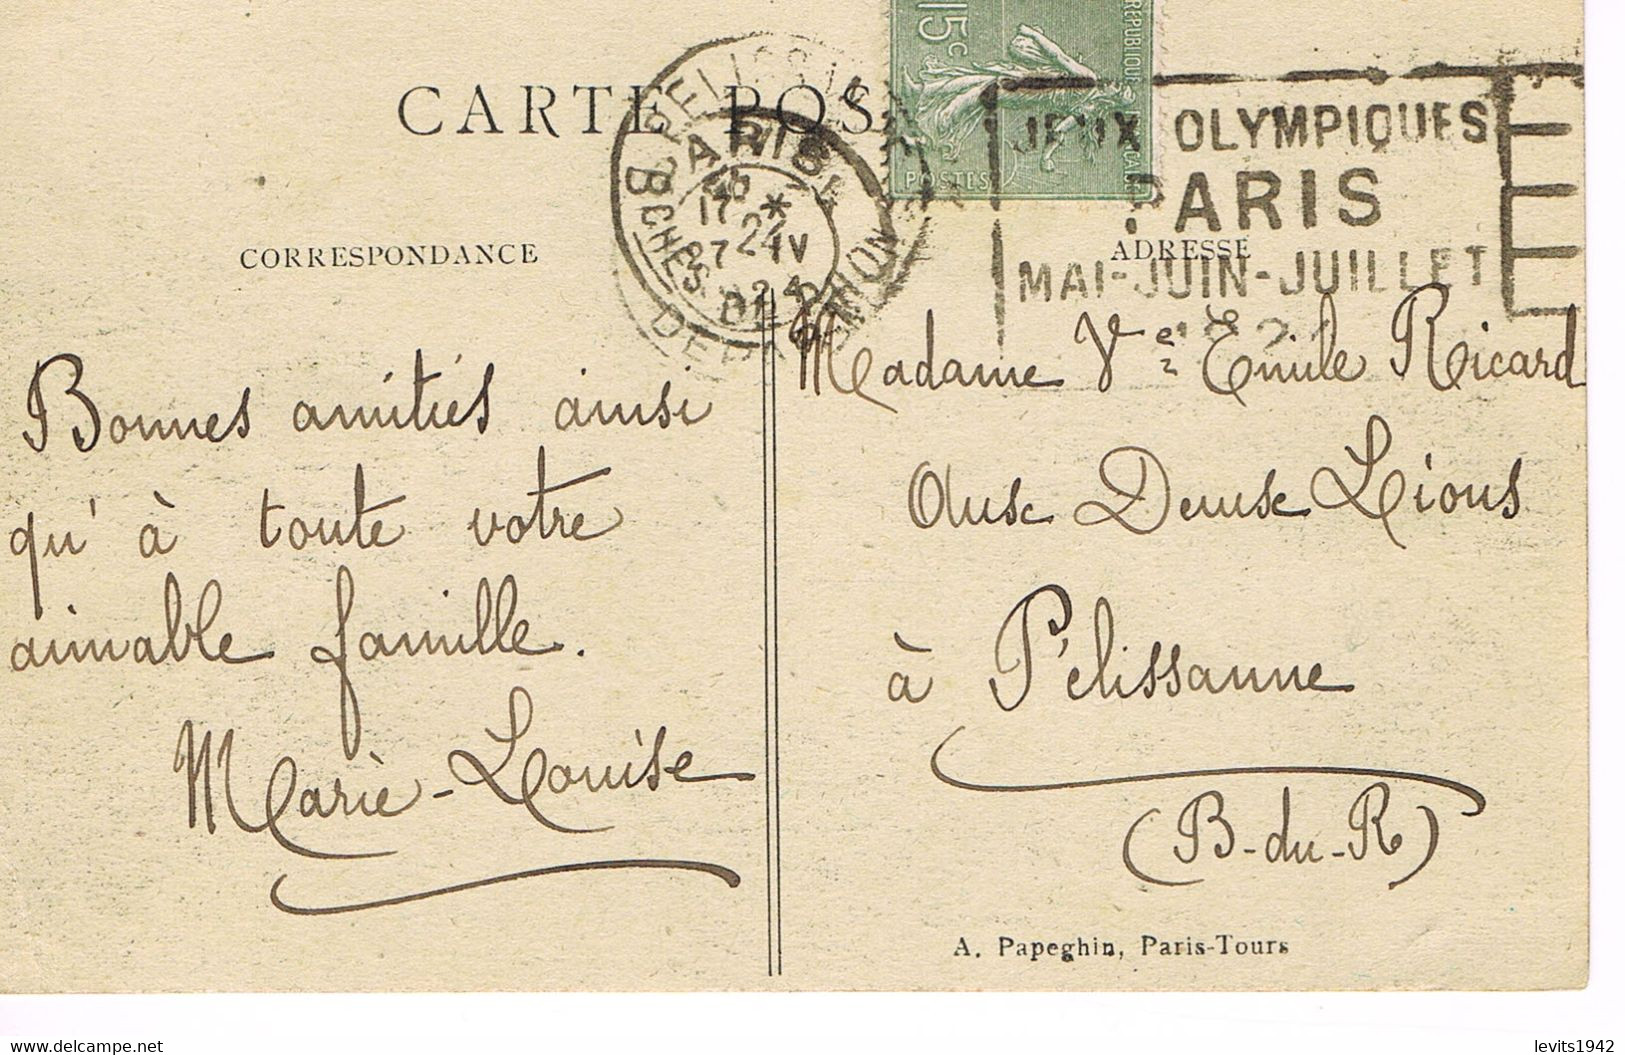 CARTE POS
15c
REPUBLIQUE
POSTES
PARIS
17 *
7 IV
24
DEPART
JEUX OLYMPIQUES
PARIS
MAI-JUIN-JUILLET
CORRESPONDANCE
ADRESSE
Bonnes amitiés ainsi
qu'à toute votre
aimable famille.
Marie-Louise
Madame Vve Emile Ricard
Deux Lions
à Pélissanne
(B-du-R)
A. Papeghin, Paris-Tours
www.delcampe.net
levits1942